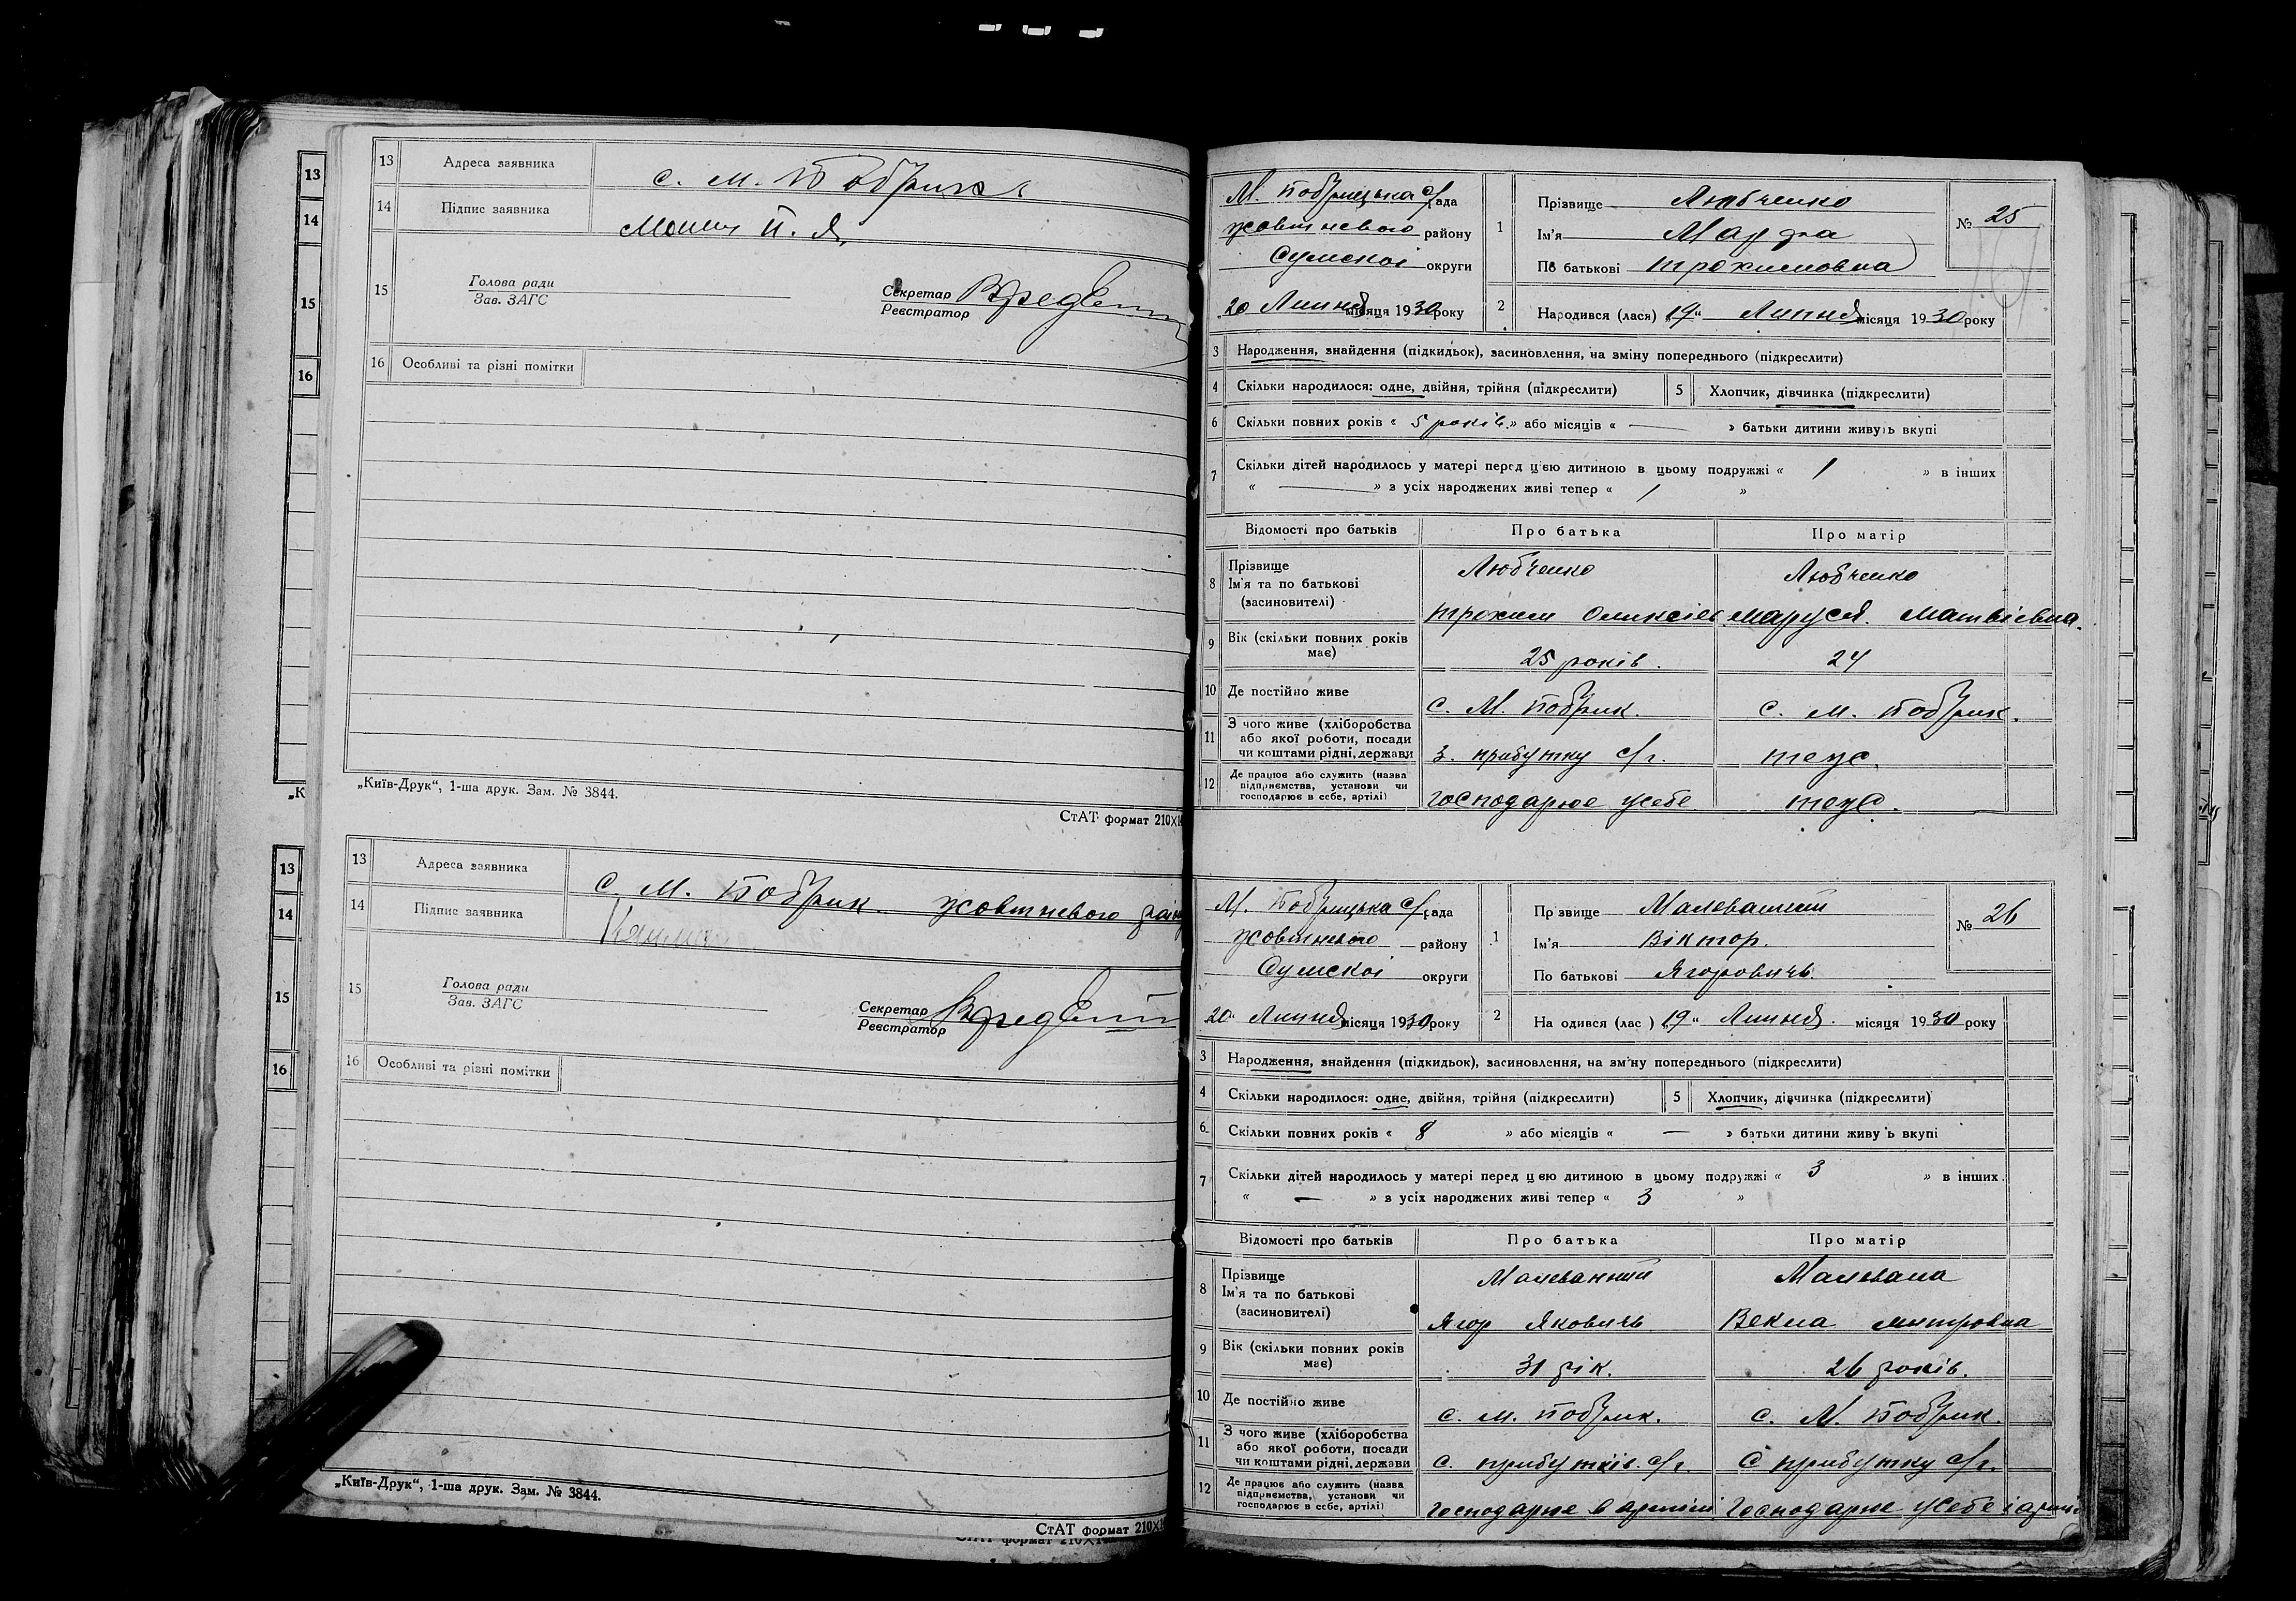 13
14
15
16
„К
13
14
15
16
13 Адреса заявника с. М. Бобрик
14 Підпис заявника П. Я.
15 Голова ради
Зав. ЗАГС
Секретар
Реєстратор
16 Особливі та різні помітки
„Київ-Друк“, 1-ша друк. Зам. № 3844.
СтАТ формат 210×1
13 Адреса заявника с. М. Бобрик. жовтневого
14 Підпис заявника
15 Голова ради
Зав. ЗАГС
Секретар
Реєстратор
16 Особливі та різні помітки
„Київ-Друк“, 1-ша друк. Зам. № 3844.
СтАТ формат 210×1
М. Бобрицька с/рада
жовтневого району
Сумскої округи
„20 Липня місяця 1930 року
1 Прізвище Любченко
Ім'я
По батькові Трохимовна
№ 25
2 Народився (лася) „19“ Липня місяця 1930 року
3 Народження, знайдення (підкидьок), засиновлення, на зміну попереднього (підкреслити)
4 Скільки народилося: одне, двійня, трійня (підкреслити) 5 Хлопчик, дівчинка (підкреслити)
6 Скільки повних років « 5 років.» або місяців « — » батьки дитини живуть вкупі
7 Скільки дітей народилось у матері перед цією дитиною в цьому подружжі « 1 » в інших
« — » з усіх народжених живі тепер « 1 »
Відомості про батьків Про батька Про матір
8 Прізвище
Ім'я та по батькові
(засиновителі)
Любченко Любченко
Трохим Оликсієв Маруся. Матвієвна.
9 Вік (скільки повних років має) 25 років. 24
10 Де постійно живе с. М. Бобрик. с. М. Бобрик.
11 З чого живе (хліборобства
або якої роботи, посади
чи коштами рідні, держави
з. прибутку с/г. теус.
12 Де працює або служить (назва
підприємства, установи чи
господарює в себе, артілі)
господарює усебе теус.
М. Бобрицька с/рада
жовтневого району
Сумскої округи
20“ Липня місяця 1930 року
1 Прзвище Малеванний
Ім'я Віктор.
По батькові Ягоровичь.
№ 26
2 На одився (лас ) „19“ Липня. місяця 1930 року
3 Народження, знайдення (підкидьок), засиновлення, на зм'ну попереднього (підкреслити)
4 Скільки народилося: одне, двійня, трійня (підкреслити) 5 Хлопчик, дівчинка (підкреслити)
6 Скільки повних років « 8 » або місяців « — » батьки дитини живу ь вкупі
7 Скільки дітей народилось у матері перед цією дитиною в цьому подружжі « 3 » в інших
« — » з усіх народжених живі тепер « 3 »
Відомості про батьків Про батька Про матір
8 Прізвище
Ім'я та по батькові
(засиновителі)
Малеванний Малевана
Ягор Яковичь Векла митровна
9 Вік (скільки повних років має) 31 рік. 26 років.
10 Де постійно живе с. М. Бобрик. с. М. Бобрик.
11 З чого живе (хліборобства
або якої роботи, посади
чи коштами рідні, держави
с. прибутків. с/г. С прибутку с/г.
12 Де працює або служить (назва
підприємства, установи чи
господарює в себе, артілі)
господарює в артілі господарює усебе і артілі